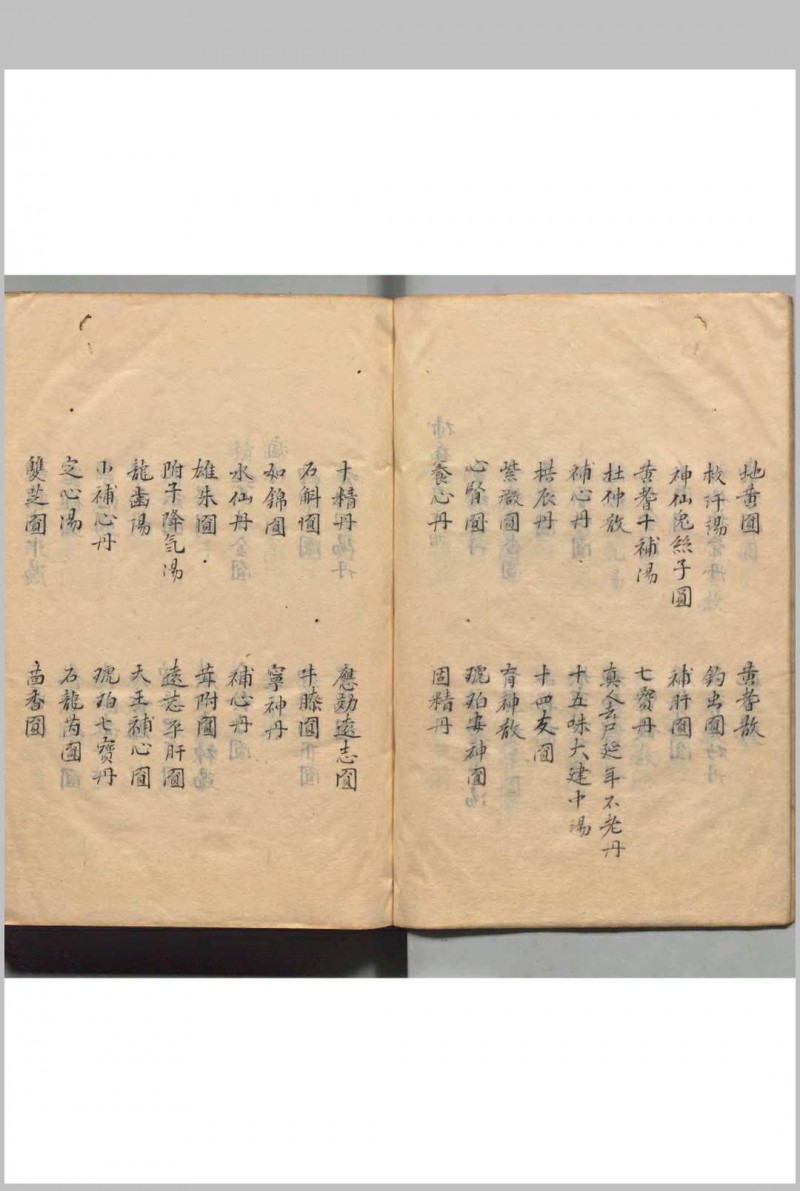 地黄圓 黄耆散
牧汗湯 鈎虫圓
神仙兔絲子圓 補肝圓
黄耆十補湯 七寶丹
杜仲散 真人去尸延年不老丹
補心丹 十五味大建中湯
拱辰丹 十四友圓
紫微圓 育神散
心腎圓 琥珀安神圓
養心丹 固精丹
十精丹 應効遠志圓
石斛圓 牛膝圓
如錦圓 寧神丹
水仙丹 補心丹
雄朱圓 茸附圓
附子降氣湯 遠志平肝圓
龍齒湯 天王補心圓
小補心丹 琥珀七寶丹
定心湯 石龍芮圓
雙芝圓 茴香圓